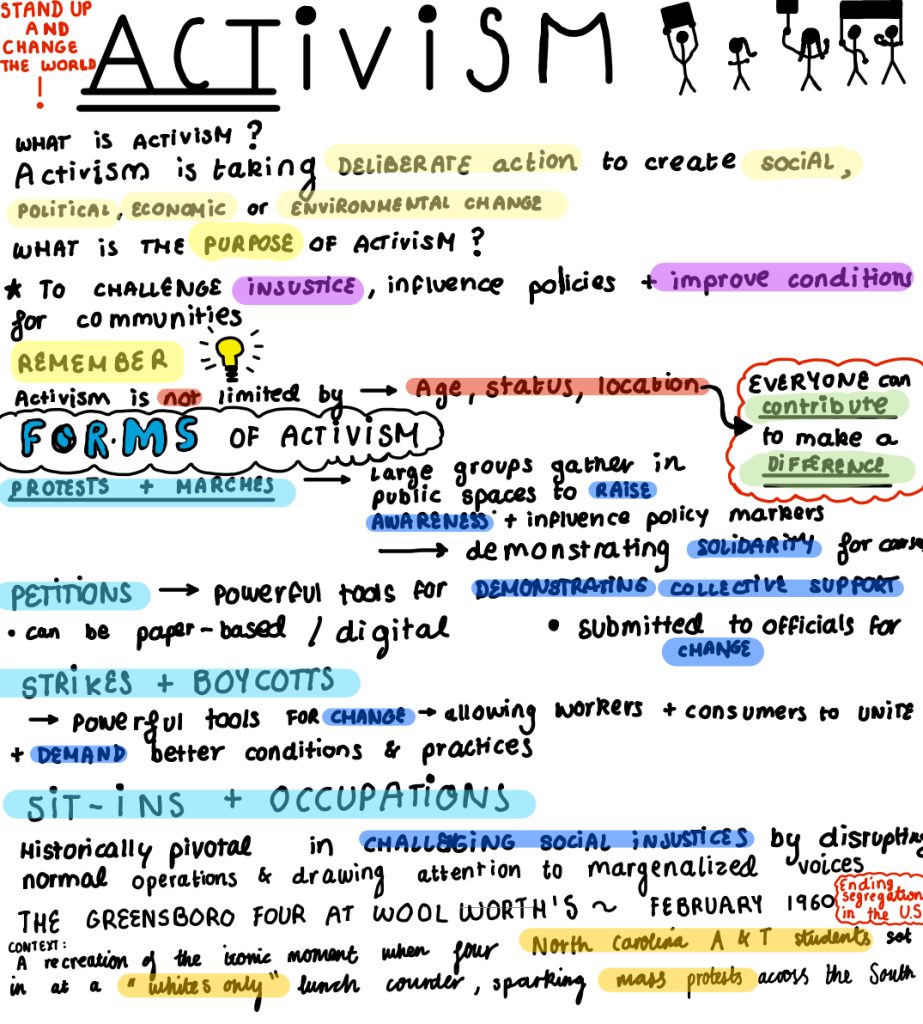 STAND UP
AND
CHANGE
THE WORLD
!
ACTiViSM
WHAT iS ACTIVISM ?
Activism is taking DELIBERATE action to create SOCiAL,
POLITICAL, ECONOMIC or ENVIRONMENTAL CHANGE
WHAT iS THE PURPOSE OF ACTIVISM ?
* TO CHALLENGE iNJUSTICE, influence policies + improve conditions
for communities
REMEMBER
Activism is not limited by → Age, status, location
EVERYONE can
contribute
to make a
DIFFERENCE
FORMS OF ACTIVISM
PROTESTS + MARCHES → Large groups gather in
public spaces to RAISE
AWARENESS + influence policy markers
→ demonstrating SOLIDARITY for cause
PETITIONS → powerful tools for DEMONSTRATING COLLECTIVE SUPPORT
• can be paper-based / digital
• submitted to officials for
CHANGE
STRIKES + BOYCOTTS
→ powerful tools FOR CHANGE → allowing workers + consumers to UNITE
+ DEMAND better conditions & practices
SiT-iNS + OCCUPATiONS
Historically pivotal in CHALLENGING SOCIAL INJUSTICES by disrupting
normal operations & drawing attention to margenalized voices
THE GREENSBORO FOUR AT WOOLWORTH'S ~ FEBRUARY 1960
Ending
segregation
in the U.S
CONTEXT:
A recreation of the iconic moment when four North Carolina A & T students sat
in at a "whites only" lunch counter, sparking mass protests across the South